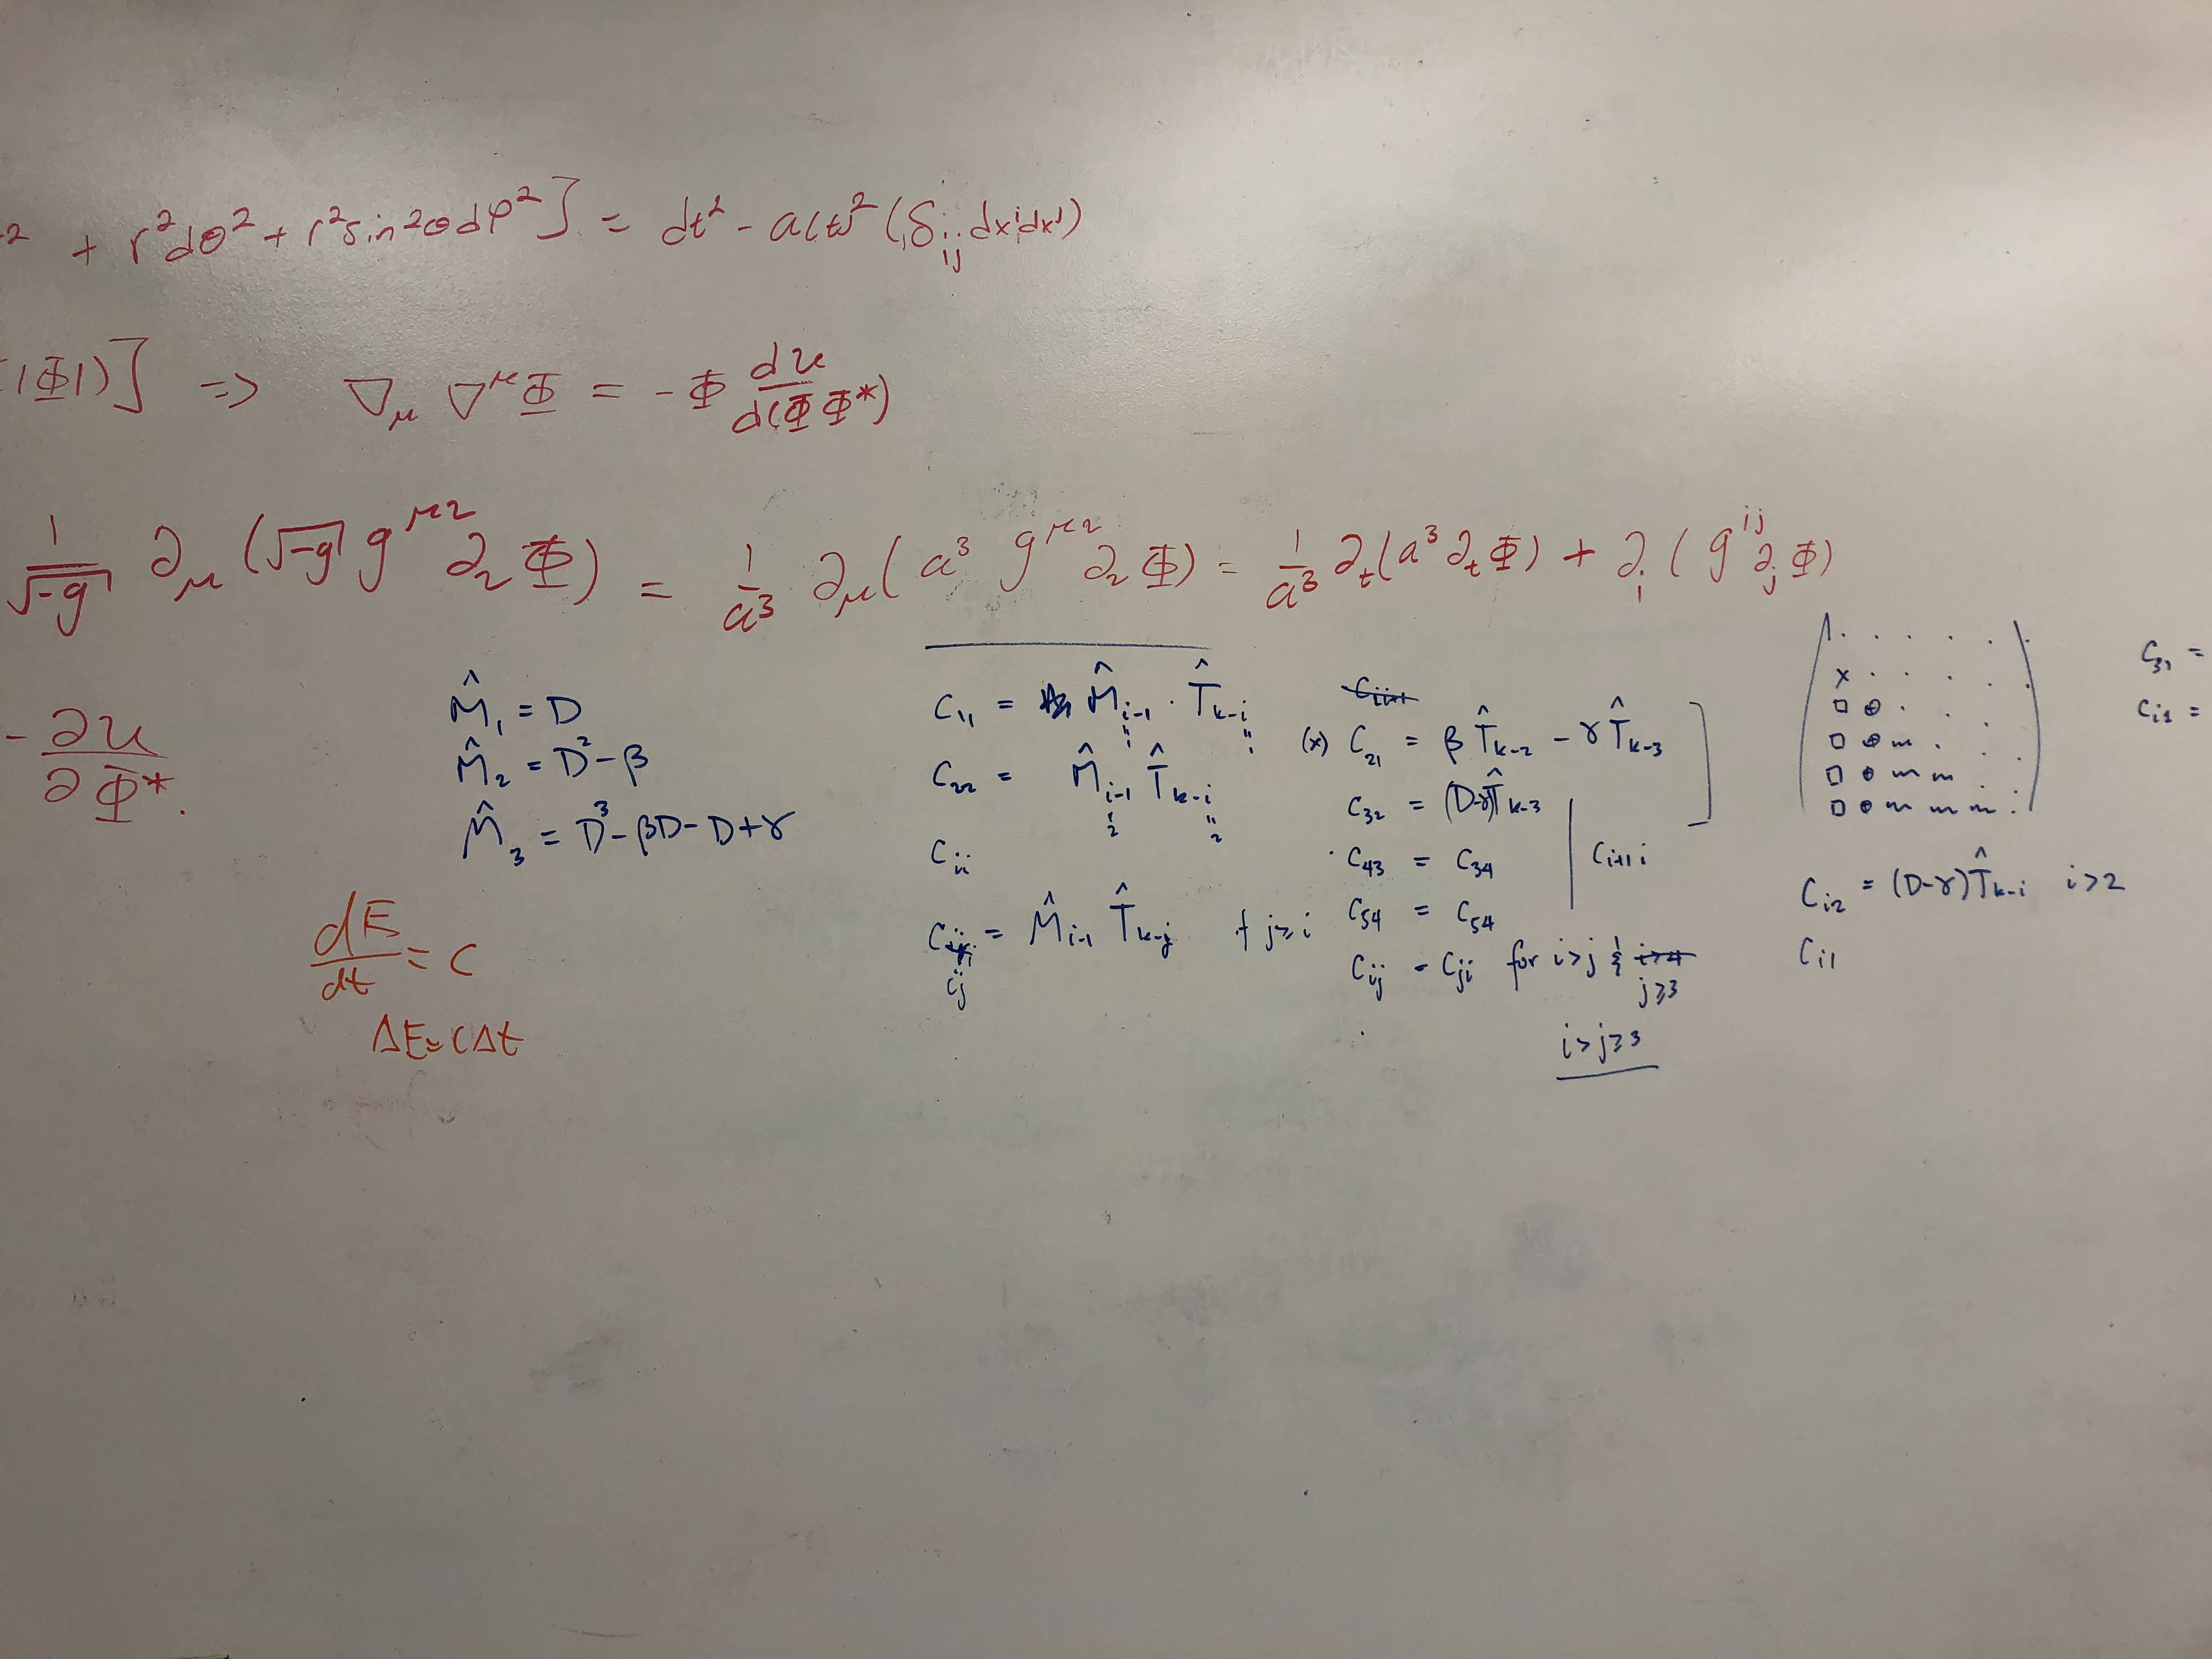 ² + r²dθ² + r²sin²θdφ²] = dt² - a(t)² (δ_ij dx^i dx^j)
|Φ|)] => ∇_μ ∇^μ Φ = -Φ du/d(ΦΦ*)
1/√-g ∂_μ (√-g g^μν ∂_ν Φ) = 1/a³ ∂_μ( a³ g^μν ∂_ν Φ) = 1/a³ ∂_t(a³ ∂_t Φ) + ∂_i ( g^ij ∂_j Φ)
- ∂u/∂Φ* .
M̂_1 = D
M̂_2 = D² - β
M̂_3 = D³ - βD - D + γ
dE/dt = c
ΔE = cΔt
C_11 = M̂_i-1 · T̂_k-i
" 1 " 1
C_22 = M̂_i-1 T̂_k-i
" 2 " 2
C_ii
C_ij = M̂_i-1 T̂_k-j + j ≥ i
C_ij
C_ii+1
(x) C_21 = β T̂_k-2 - γ T̂_k-3
C_32 = (D-γ)T̂_k-3
C_43 = C_34
C_54 = C_54
C_i+1 i
C_ij = C_ji for i>j & i>4
j≥3
i>j≥3
. . . . . .
x . . . . .
□ ⊕ . . . .
□ ⊕ m . . .
□ ⊕ m m . .
□ ⊕ m m m .
C_i2 = (D-γ)T̂_k-i i>2
C_i1
C_31 =
C_i1 =